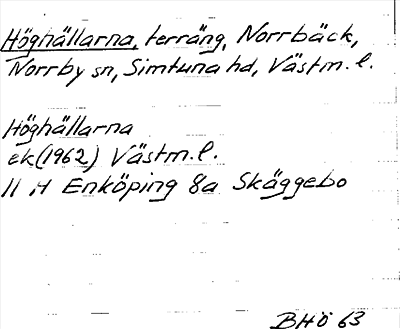 Höghällarna, terräng, Norrbäck,
Norrby sn, Simtuna hd, Västm. l.
Höghällarna
ek (1962) Västm. l.
11 H Enköping 8a Skäggebo
BHÖ 63